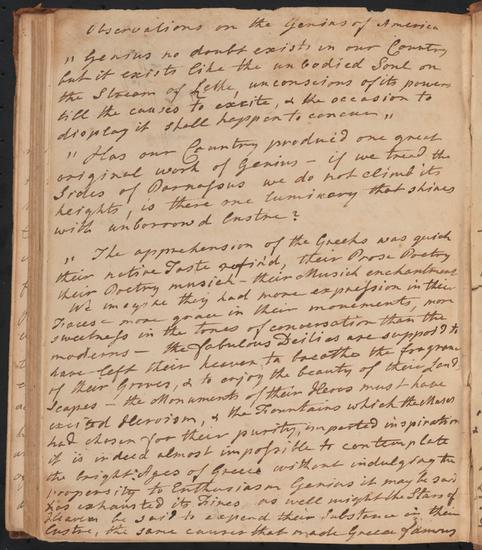 Observations on the Genius of America
" Genius no doubt exists in our Country
but it exists like the unbodied Soul on
the Stream of Lethe, unconscious of its powers
till the causes to excite, & the occasion to
display it shall happen to concur "
" Has our Country produced one great
original work of Genius – if we tread the
Sides of Parnassus we do not climb its
heights, is there one luminary that shines
with unborrowd Lustre?
" The apprehension of the Greeks was quick
their native Taste refind, their Prose Poetry
their Poetry musick – their Musick enchantment
We imagine they had more expression in their
Faces – more grace in their movements, more
sweetness in the tones of conversation than the
moderns – the fabulous Deities are supposd to
have left their heaven to breathe the fragrance
of their Groves, & to enjoy the beauty of their Land
scapes – the Monuments of their Heros must have
excited Heroism, & the Fountains which the Muses
had chosen for their purity, imparted inspiration
it is indeed almost impossible to contemplate
the bright Ages of Greece without indulging the
propensity to Enthusiasm Genius it may be said
has exhausted its Fires as well might the Stars of
Heaven be said to expend their Substance in their
Lustre, the same causes that made Greece famous